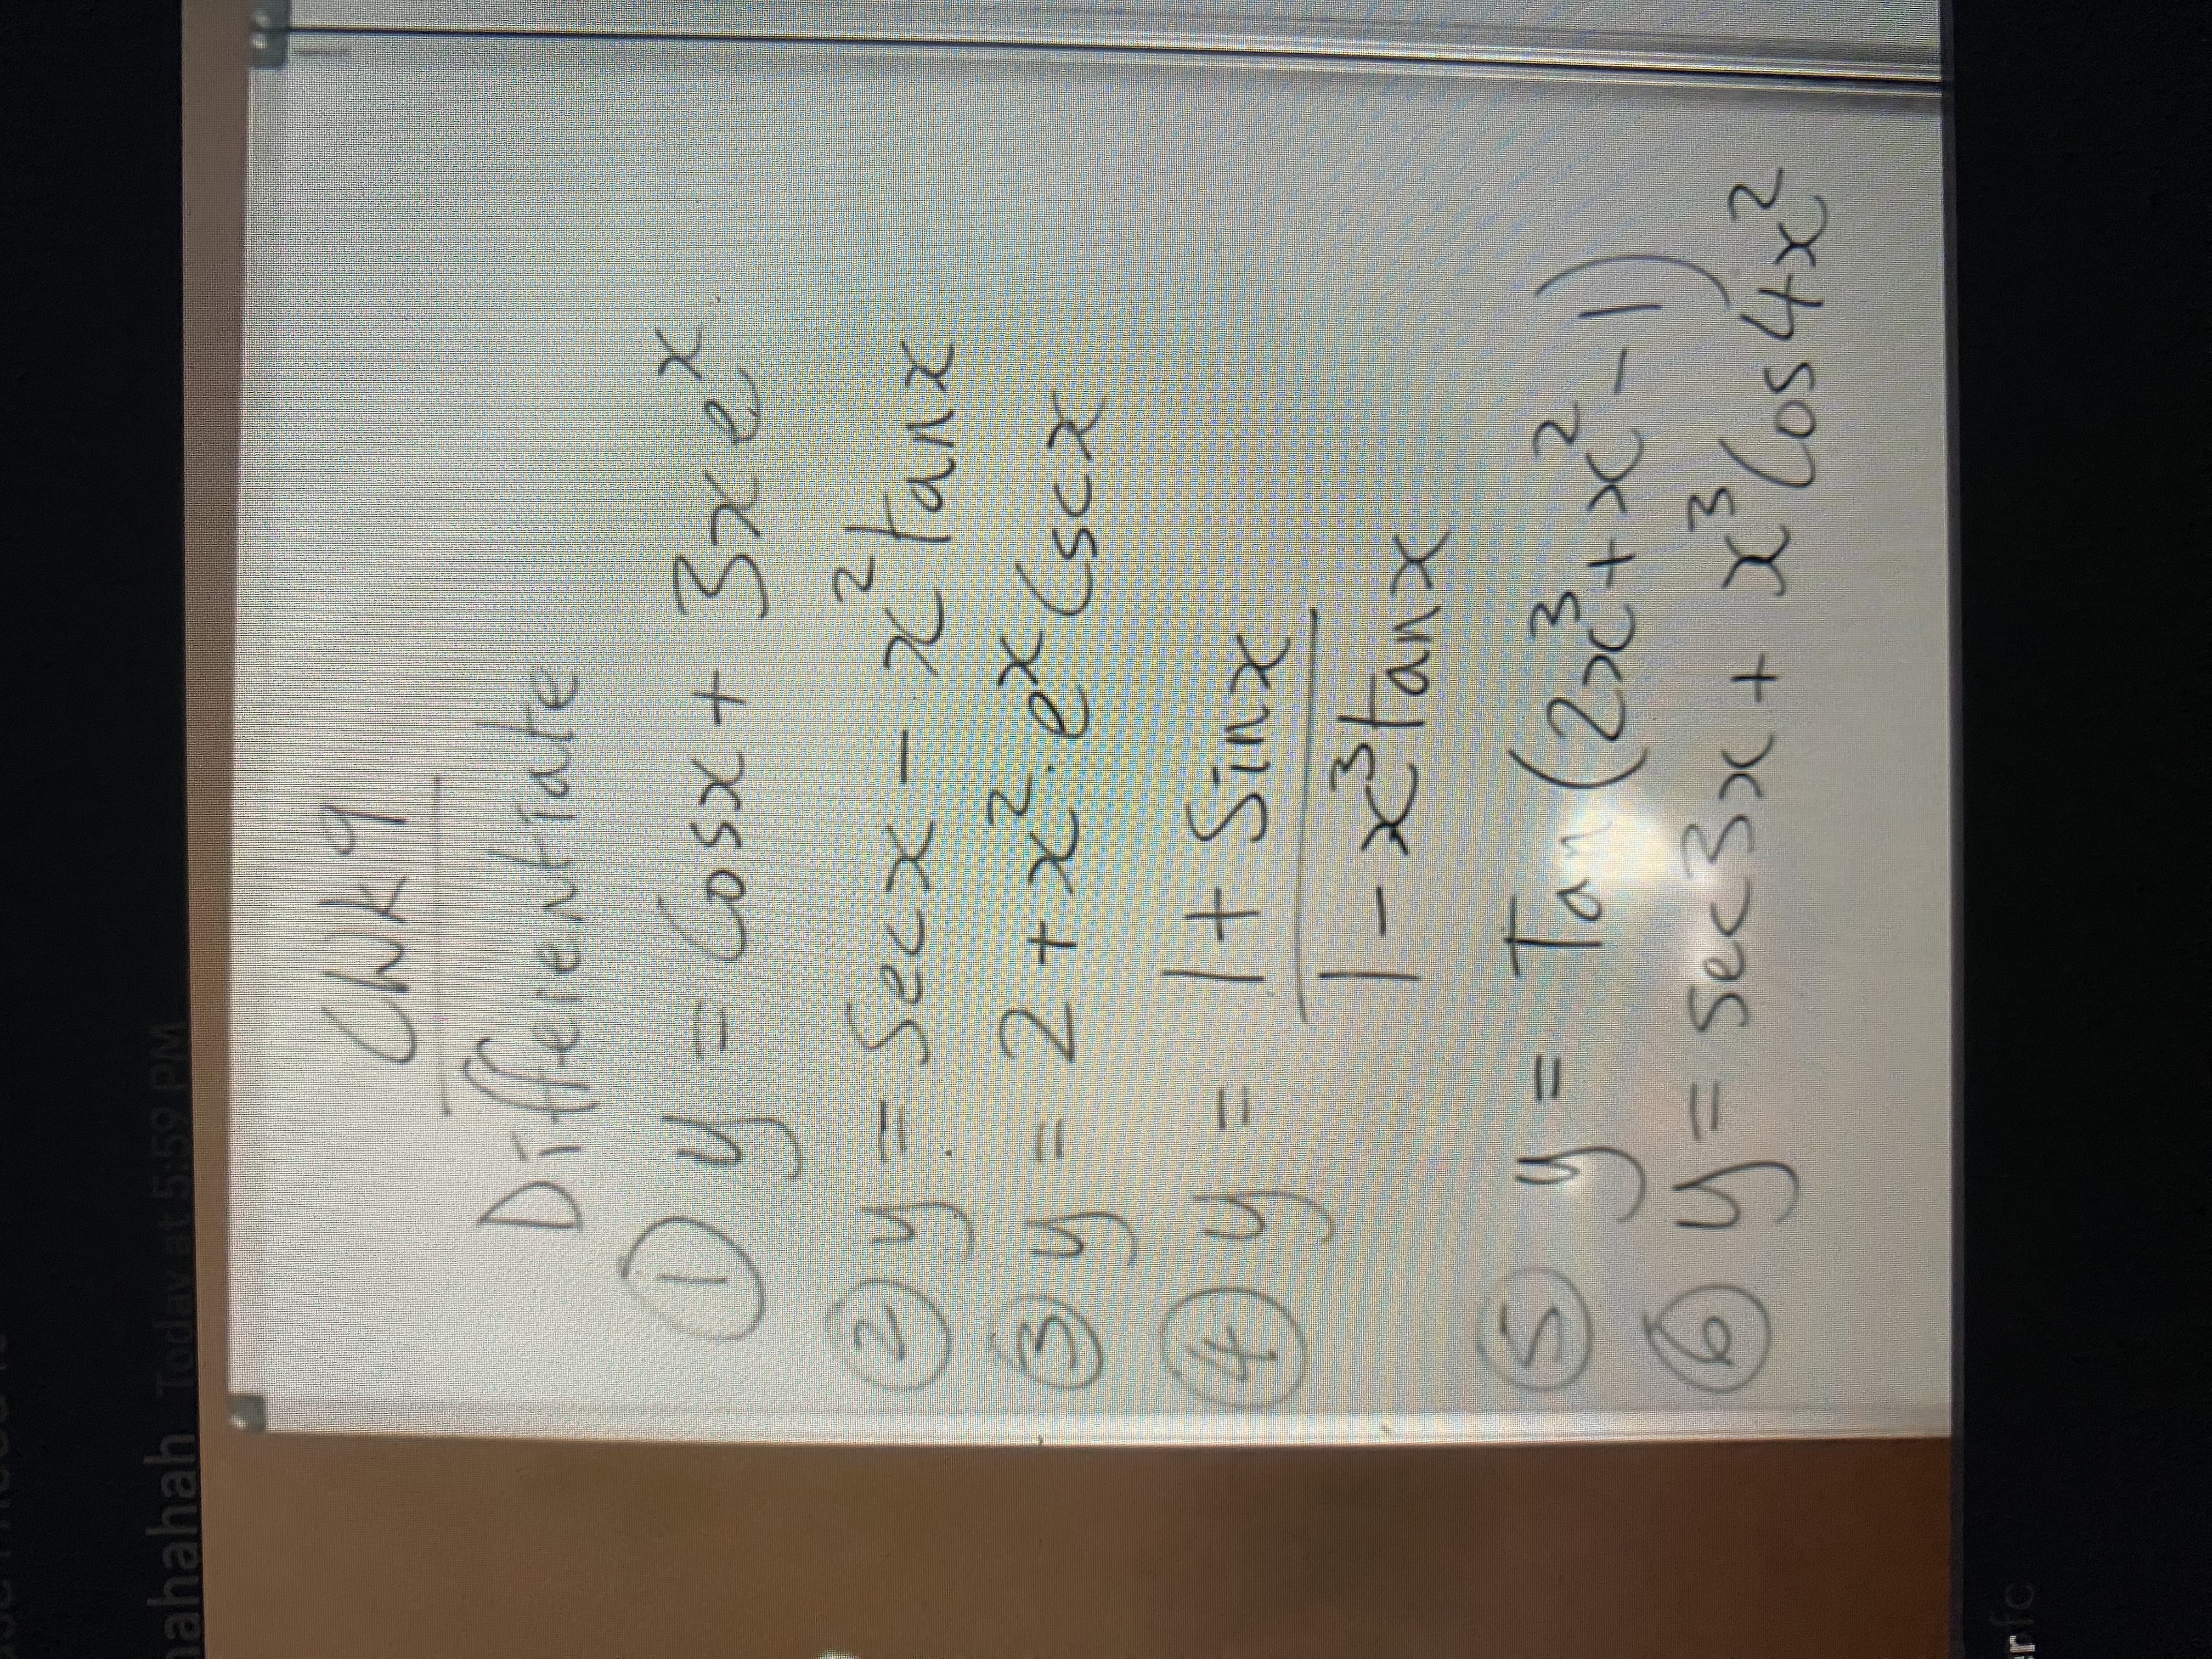 hahahah Today at 5:59 PM
CWK 9
Differentiate
① y = Cosx + 3xeˣ
② y = Secx - x² tanx
③ y = 2 + x². eˣ Cscx
④ y = 1 + Sinx
1 - x³tanx
⑤ y = Tan (2x³ + x² - 1)
⑥ y = Sec3x + x³ Cos4x²